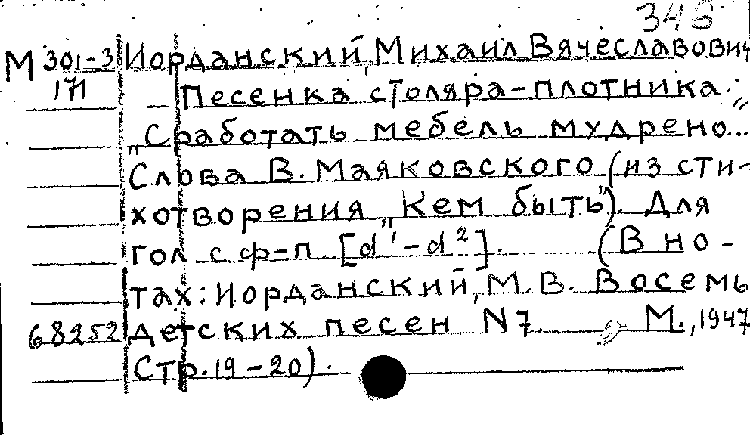 345
М 301-3 Иорданский, Михаил Вячеславович
171 Песенка столяра-плотника.
„Сработать мебель мудрено..."
Слова В. Маяковского (из сти-
хотворения „Кем быть"). Для
гол. с ф-п [d¹-d²]. (В но-
тах: Иорданский, М.В. Восемь
68252 детских песен N7 М., 1947
Стр. 19-20).